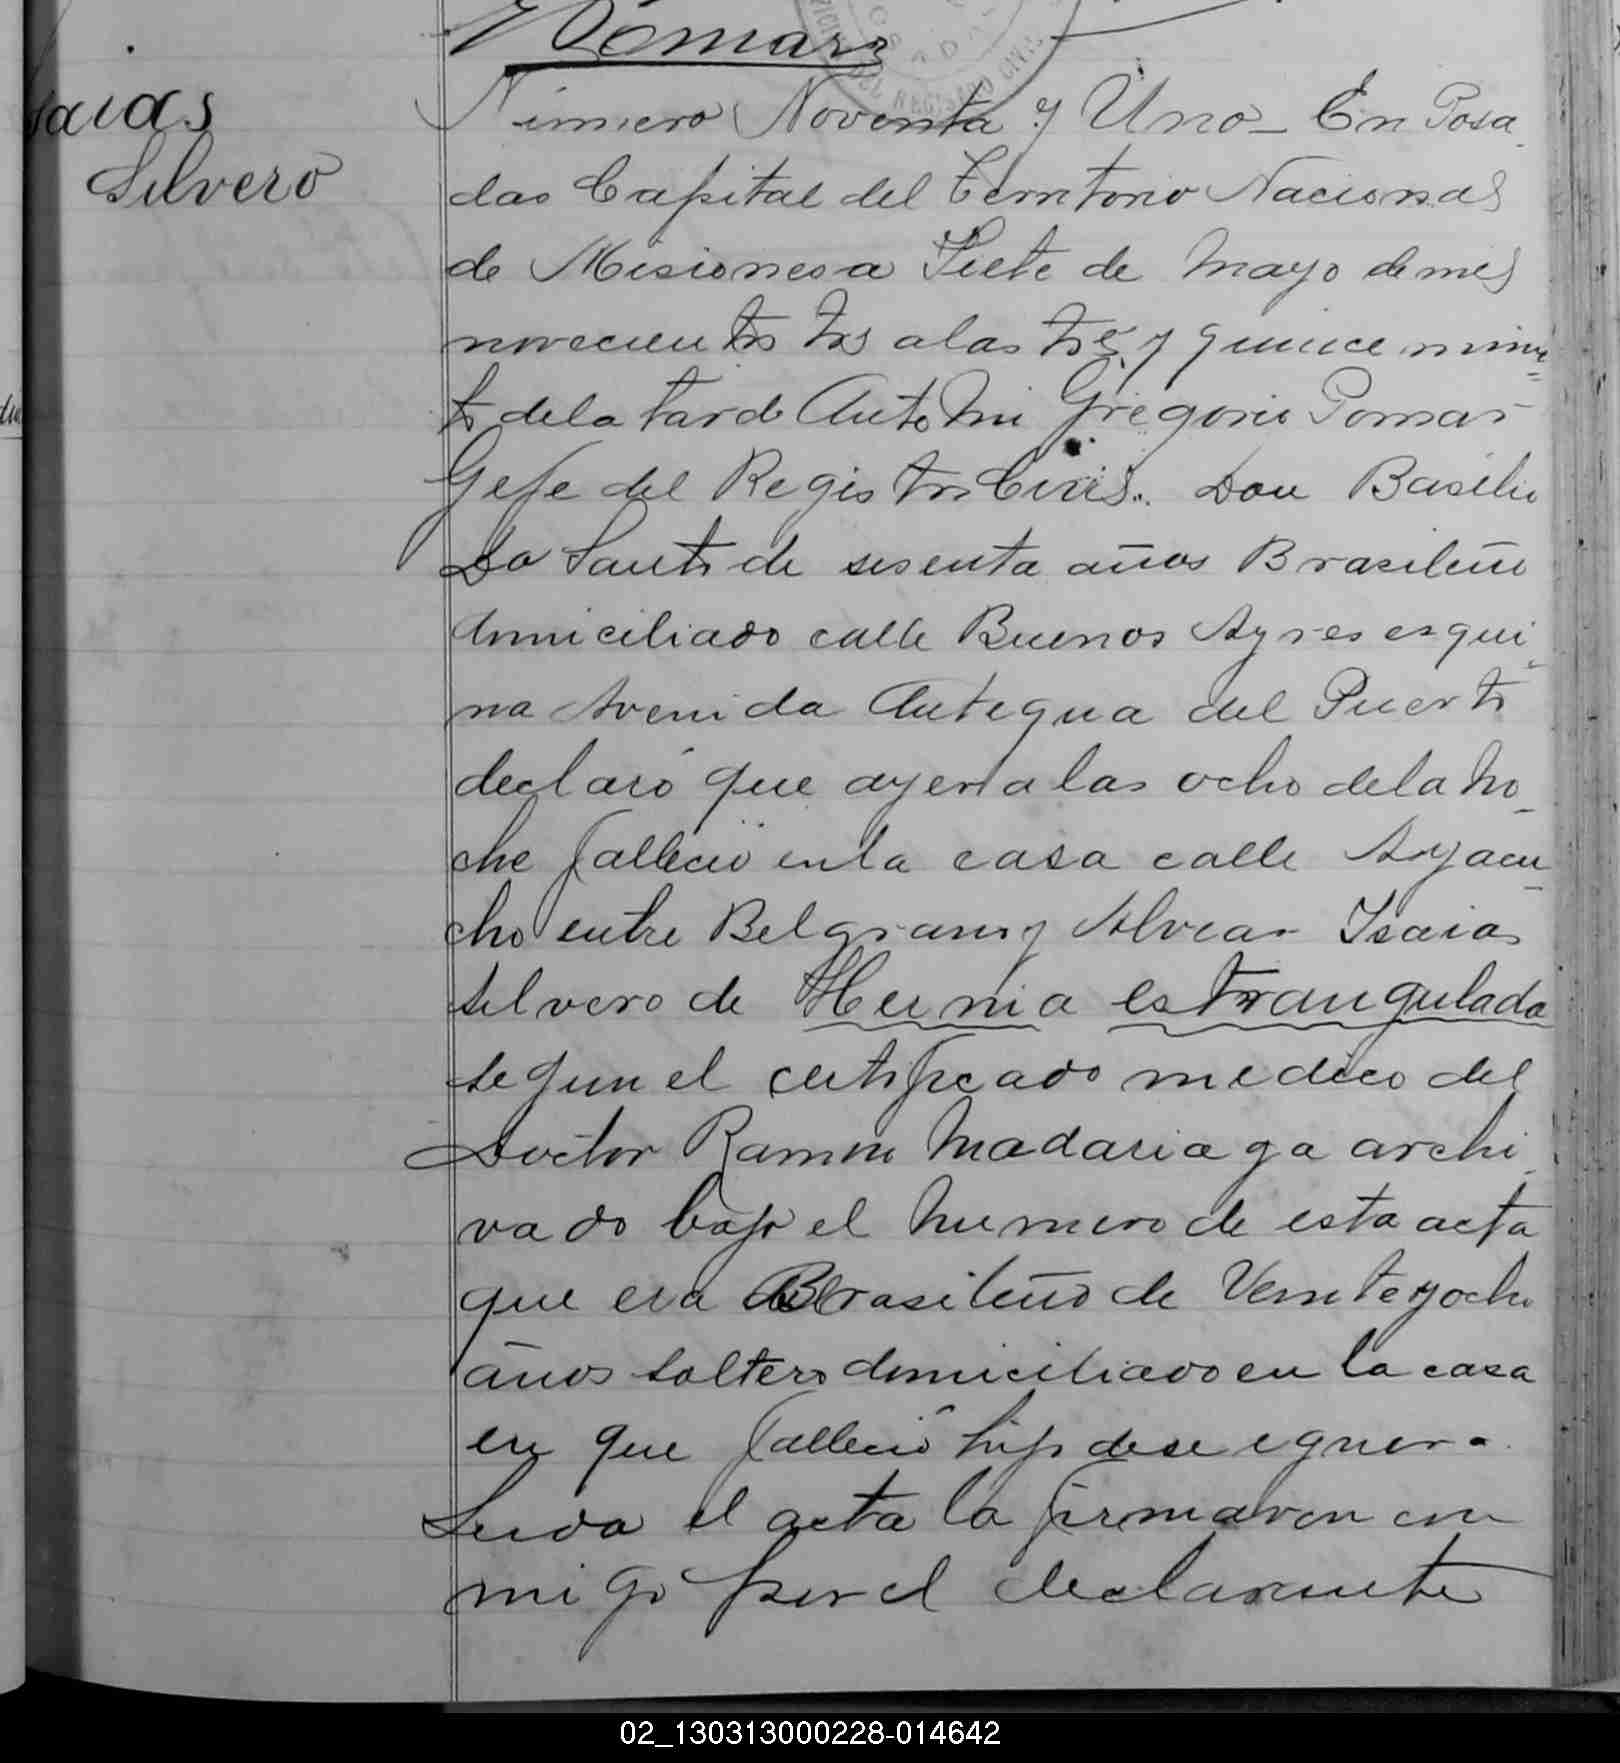 Pomar
Isaias
Silvero
Número Noventa y Uno_ En Posa_
das Capital del Territorio Nacional
de Misiones a Siete de Mayo de mil
novecientos tres a las tres y quince minu=
tos de la tarde Ante Mi Gregorio Pomar
Gefe del Registro Civil. Don Basilio
Do Santo de sesenta años Brasileño
domiciliado calle Buenos Ayres esqui_
na Avenida Antigua del Puerto
declaró que ayer a las ocho de la no_
che falleció en la casa calle Ayacu_
cho entre Belgrano y Alvear Isaias
Silvero de Hernia estrangulada
segun el certificado medico del
Doctor Ramon Madariaga archi_
vado bajo el numero de esta acta
que era Brasileño de Veinte y ocho
años soltero domiciliado en la casa
en que falleció hijo de se ignora.
Leida el acta la firmaron con
migo por el declarante
02_130313000228-014642